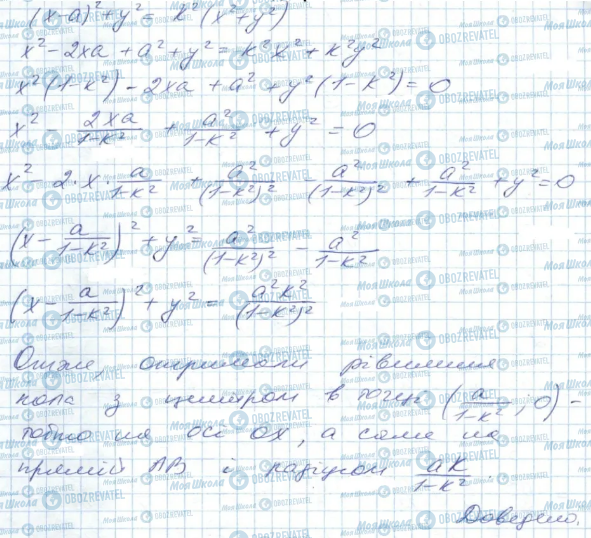 (x-a)²+y²= k²(x²+y²)
x²-2xa+a²+y²=k²x²+k²y²
x²(1-k²)-2xa+a²+y²(1-k²)=0
x² - 2xa/(1-k²) + a²/(1-k²) + y² = 0
x² 2·x·a/(1-k²) + a²/(1-k²)² - a²/(1-k²)² + a²/(1-k²) + y²=0
(x - a/(1-k²))² + y² = a²/(1-k²)² - a²/(1-k²)
(x - a/(1-k²))² + y² = a²k²/(1-k²)²
Отже, отримали рівняння
кола з центром в точці (a/(1-k²); 0) -
тобто на осі OX, а саме на
прямій AB і радіусом ak/(1-k²)
Доведено.